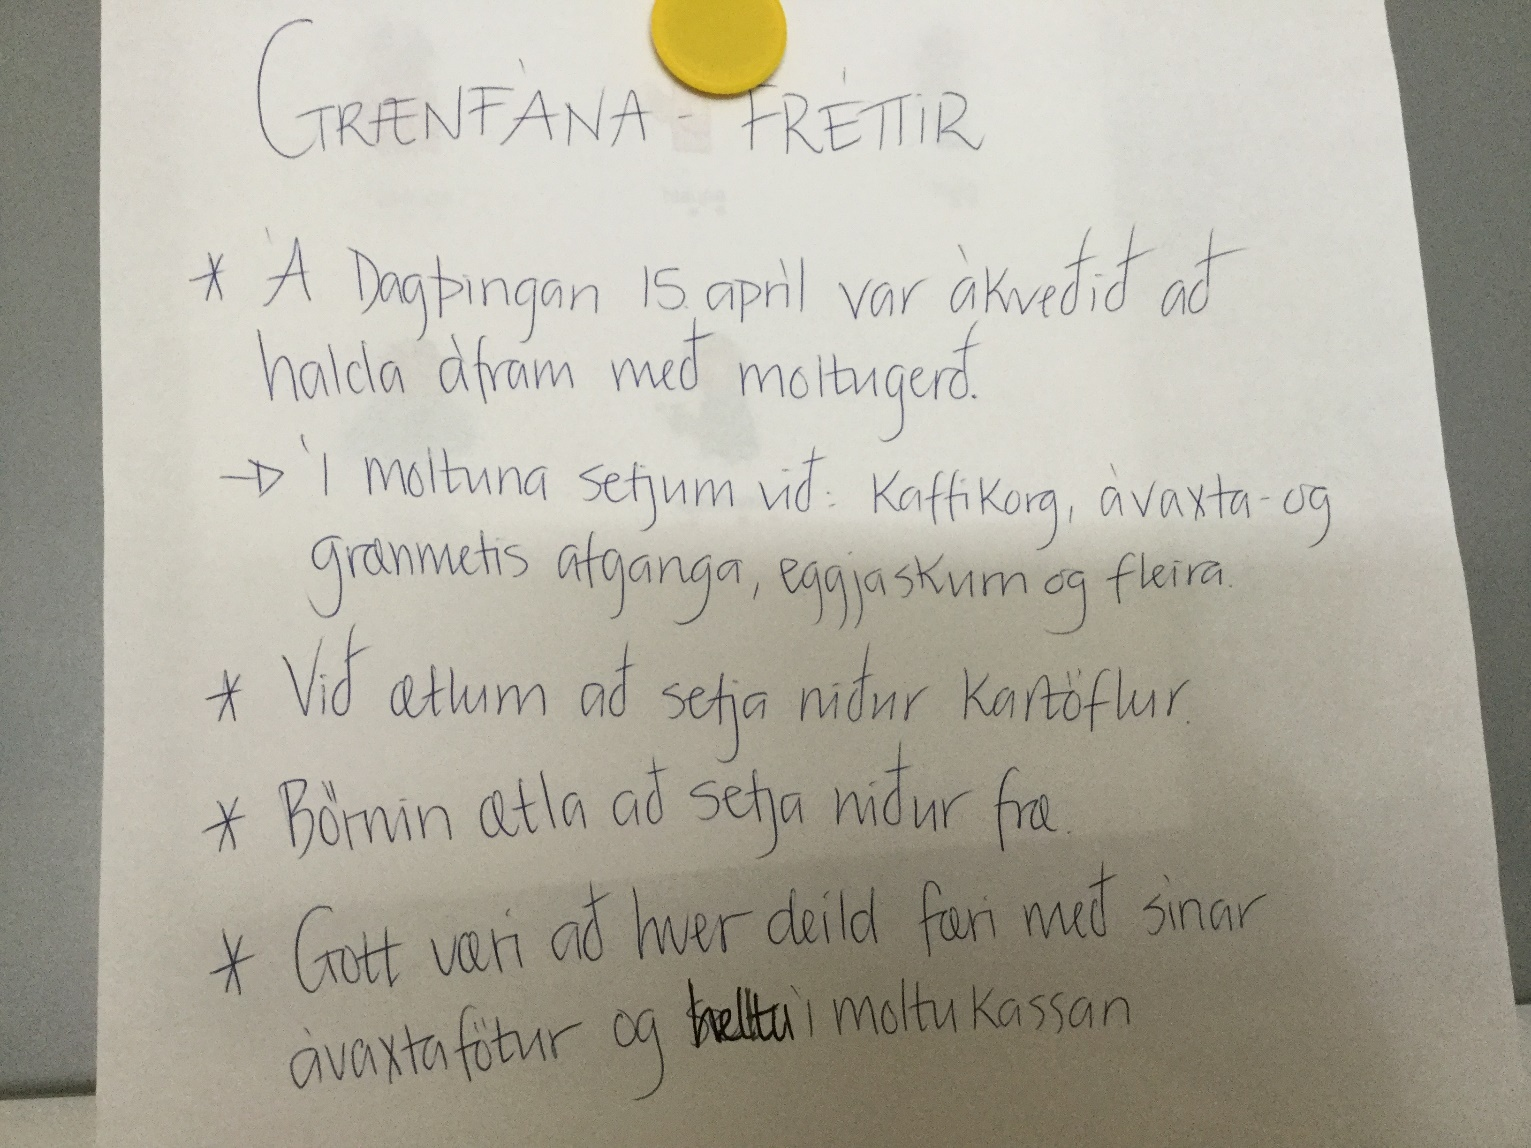 GRÆNFÁNA - FRÉTTIR
* Á Dagþingan 15. apríl var ákveðið að
halda áfram með moltugerð.
→ Í moltuna setjum við: Kaffikorg, ávaxta- og
grænmetis afganga, eggjaskurn og fleira.
* Við ætlum að setja niður Kartöflur.
* Börnin ætla að setja niður fræ.
* Gott væri að hver deild færi með sínar
ávaxtafötur og helltu í moltukassan